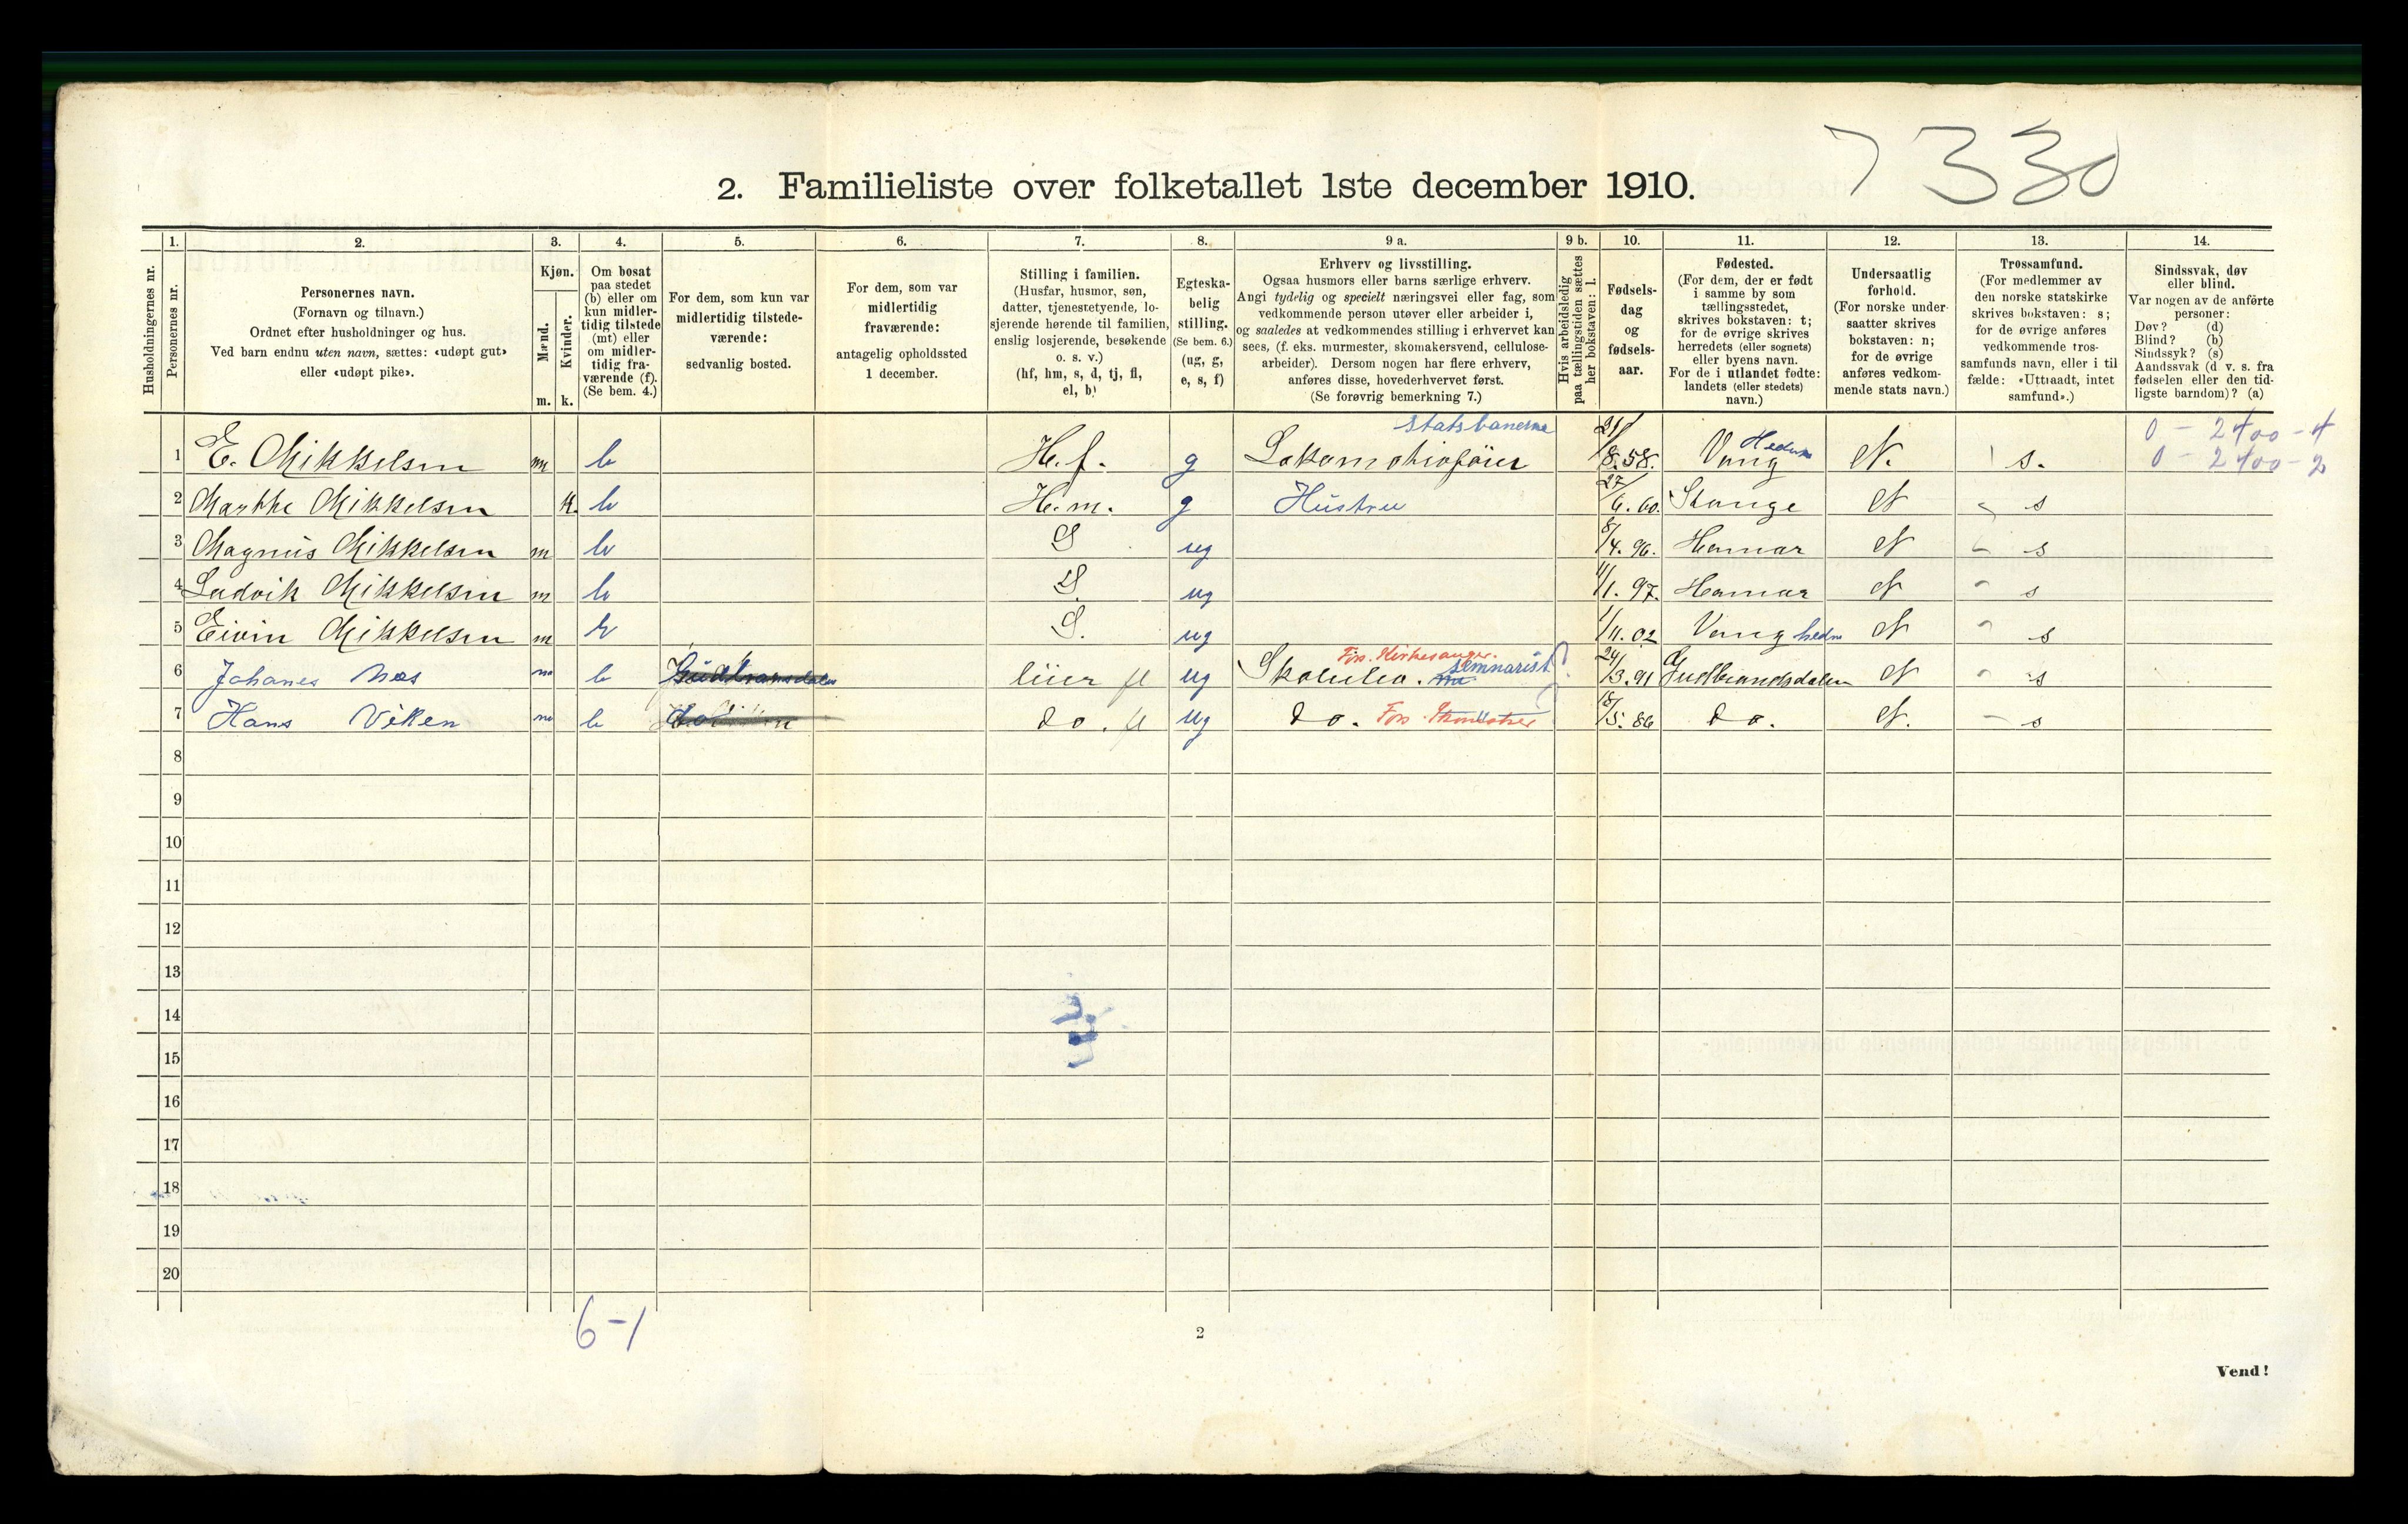 7330
2. Familieliste over folketallet 1ste december 1910.
Husholdningernes nr.
1. Personernes nr.
2. Personernes navn. (Fornavn og tilnavn.) Ordnet efter husholdninger og hus. Ved barn endnu uten navn, sættes: «udøpt gut» eller «udøpt pike».
3. Kjøn. Mænd. m. Kvinder. k.
4. Om bosat paa stedet (b) eller om kun midlertidig tilstede (mt) eller om midlertidig fraværende (f). (Se bem. 4.)
5. For dem, som kun var midlertidig tilstedeværende: sedvanlig bosted.
6. For dem, som var midlertidig fraværende: antagelig opholdssted 1 december.
7. Stilling i familien. (Husfar, husmor, søn, datter, tjenestetyende, losjerende hørende til familien, enslig losjerende, besøkende o. s. v.) (hf, hm, s, d, tj, fl, el, b)
8. Egteskabelig stilling. (Se bem. 6.) (ug, g, e, s, f)
9 a. Erhverv og livsstilling. Ogsaa husmors eller barns særlige erhverv. Angi tydelig og specielt næringsvei eller fag, som vedkommende person utøver eller arbeider i, og saaledes at vedkommendes stilling i erhvervet kan sees, (f. eks. murmester, skomakersvend, cellulosearbeider). Dersom nogen har flere erhverv, anføres disse, hovederhvervet først. (Se forøvrig bemerkning 7.)
9 b. Hvis arbeidsledig paa tællingstiden sættes her bokstaven: l.
10. Fødselsdag og fødselsaar.
11. Fødested. (For dem, der er født i samme by som tællingsstedet, skrives bokstaven: t; for de øvrige skrives herredets (eller sognets) eller byens navn. For de i utlandet fødte: landets (eller stedets) navn.)
12. Undersaatlig forhold. (For norske undersaatter skrives bokstaven: n; for de øvrige anføres vedkommende stats navn.)
13. Trossamfund. (For medlemmer av den norske statskirke skrives bokstaven: s; for de øvrige anføres vedkommende trossamfunds navn, eller i tilfælde: «Uttraadt, intet samfund».)
14. Sindssvak, døv eller blind. Var nogen av de anførte personer: Døv? (d) Blind? (b) Sindssyk? (s) Aandssvak (d. v. s. fra fødselen eller den tidligste barndom)? (a)
statsbanerne 0 - 2400 - 4
1 E. Mikkelsen m b H.f. g Lokomotivfører 21/8.58. Vang Hedm N. s. 0 - 2400 - 2
2 Marthe Mikkelsen k. b H.m. g Hustru 27/6.60. Stange N s
3 Magnus Mikkelsen m b S ug 8/4.96. Hamar N s
4 Ludvik Mikkelsen m b S. ug 11/1.97. Hamar N s
5 Eivin Mikkelsen m b S. ug 1/11.02 Vang hedm N s
Fors. Kirkesanger.
6 Johanes Næs m b Gudbransdalen liier fl ug Skoleelev. seminarist 24/3.91 Gudbrandsdalen N s
7 Hans Viken m b do. fl ug do. Fors. 18/5.86 do. N. s
8
9
10
11
12
13
14
15
16
17
18
19
20
6-1
2
Vend!